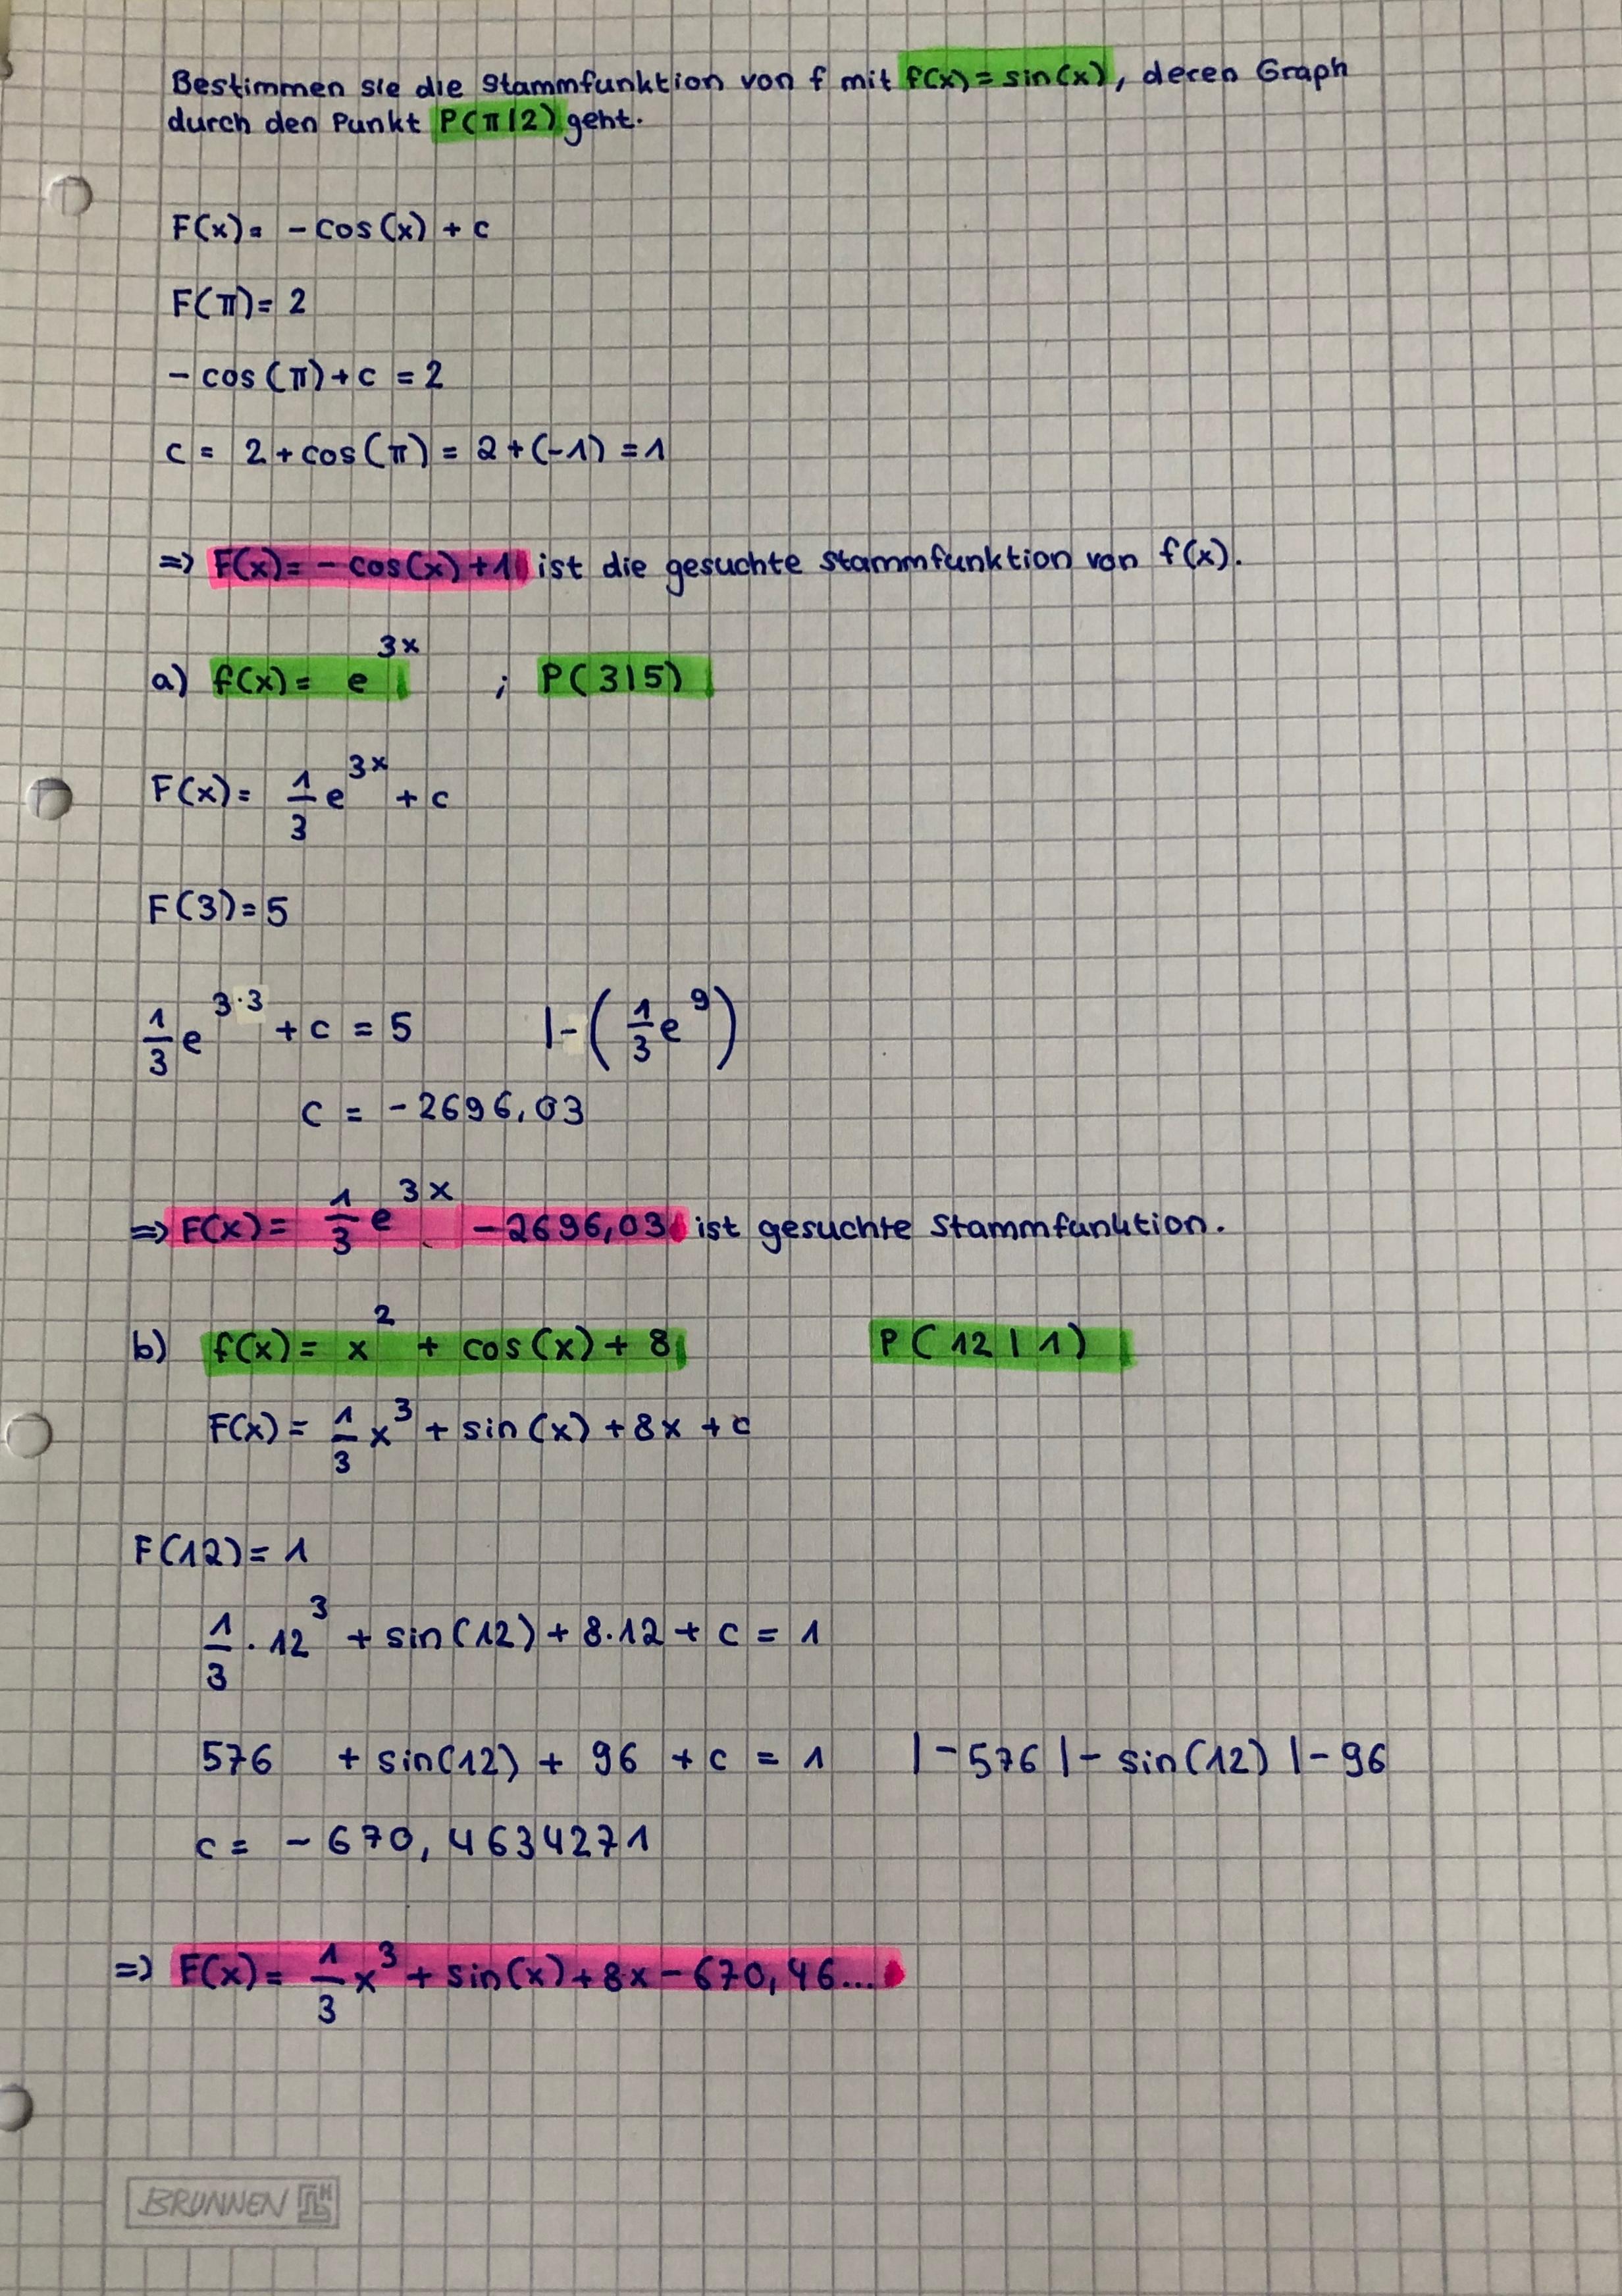 Bestimmen sie die Stammfunktion von f mit f(x) = sin(x), deren Graph
durch den Punkt P(π|2) geht.
F(x) = - cos(x) + c
F(π) = 2
- cos(π) + c = 2
c = 2 + cos(π) = 2 + (-1) = 1
=> F(x) = - cos(x) + 1 ist die gesuchte Stammfunktion von f(x).
a) f(x) = e^{3x} ; P(3|5)
F(x) = 1/3 e^{3x} + c
F(3) = 5
1/3 e^{3·3} + c = 5 |-(1/3 e^9)
c = - 2696,03
=> F(x) = 1/3 e^{3x} - 2696,03 ist gesuchte Stammfunktion.
b) f(x) = x^2 + cos(x) + 8 P(12|1)
F(x) = 1/3 x^3 + sin(x) + 8x + c
F(12) = 1
1/3 · 12^3 + sin(12) + 8·12 + c = 1
576 + sin(12) + 96 + c = 1 |-576 |- sin(12) |-96
c = - 670,4634271
=> F(x) = 1/3 x^3 + sin(x) + 8x - 670,46...
BRUNNEN